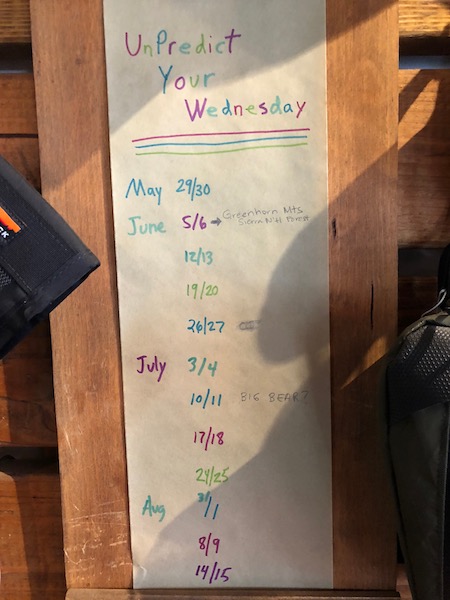 UnPredict
Your
Wednesday
May 29/30
June 5/6 → Greenhorn Mts
Sierra Nat Forest
12/13
19/20
26/27
July 3/4
10/11 BIG BEAR?
17/18
24/25
Aug 31/1
8/9
14/15
CK